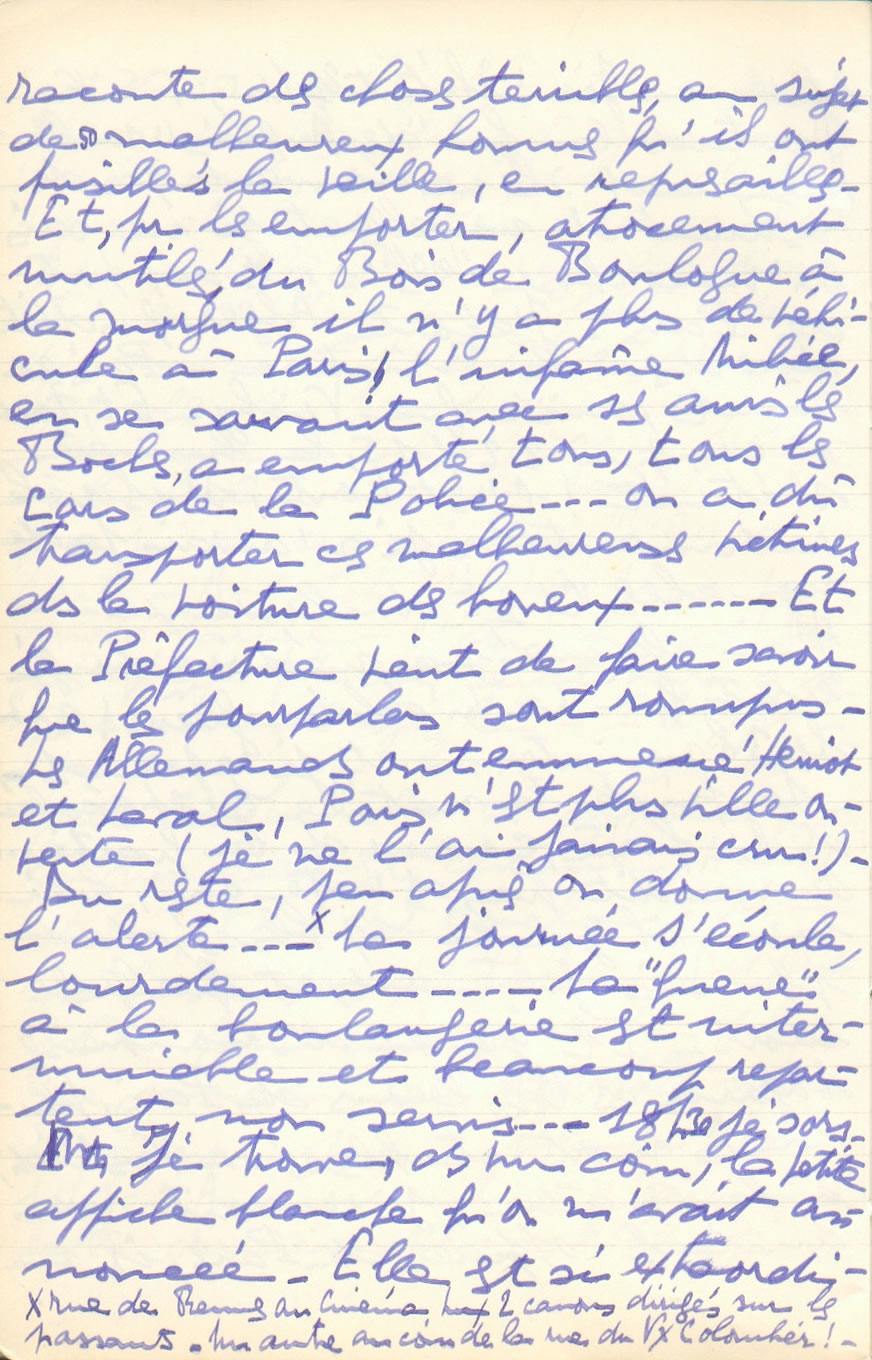 raconte des choses terribles, au sujet
de 50 malheureux hommes qu'ils ont
fusillés la veille, en représailles -
Et, pr les emporter, atrocement
mutilés, du Bois de Boulogne à
la morgue il n'y a plus de véhi-
cule à Paris, l'infâme Milice,
en se sauvant avec ses amis les
Boches, a emporté tous, tous les
cars de la Police --- on a dû
transporter ces malheureuses victimes
ds la voiture des boueux ------- Et
la Préfecture vient de faire savoir
que les pourparlers sont rompus -
Les Allemands ont emmené Herriot
et Laval, Paris n'est plus ville ou-
verte (je ne l'ai jamais cru!) -
Du reste, peu après on donne
l'alerte --- x La journée s'écoule,
lourdement ----- La "queue"
à la boulangerie est inter-
minable et beaucoup repar-
tent, non servis --- 18h30 je sors -
Je trouve, ds un coin, la petite
affiche blanche qu'on m'avait an-
noncée - Elle est si extraordi-
x rue de Rennes au Cinéma 2 canons dirigés sur les
passants - Un autre au coin de la rue du Vx Colombier! -